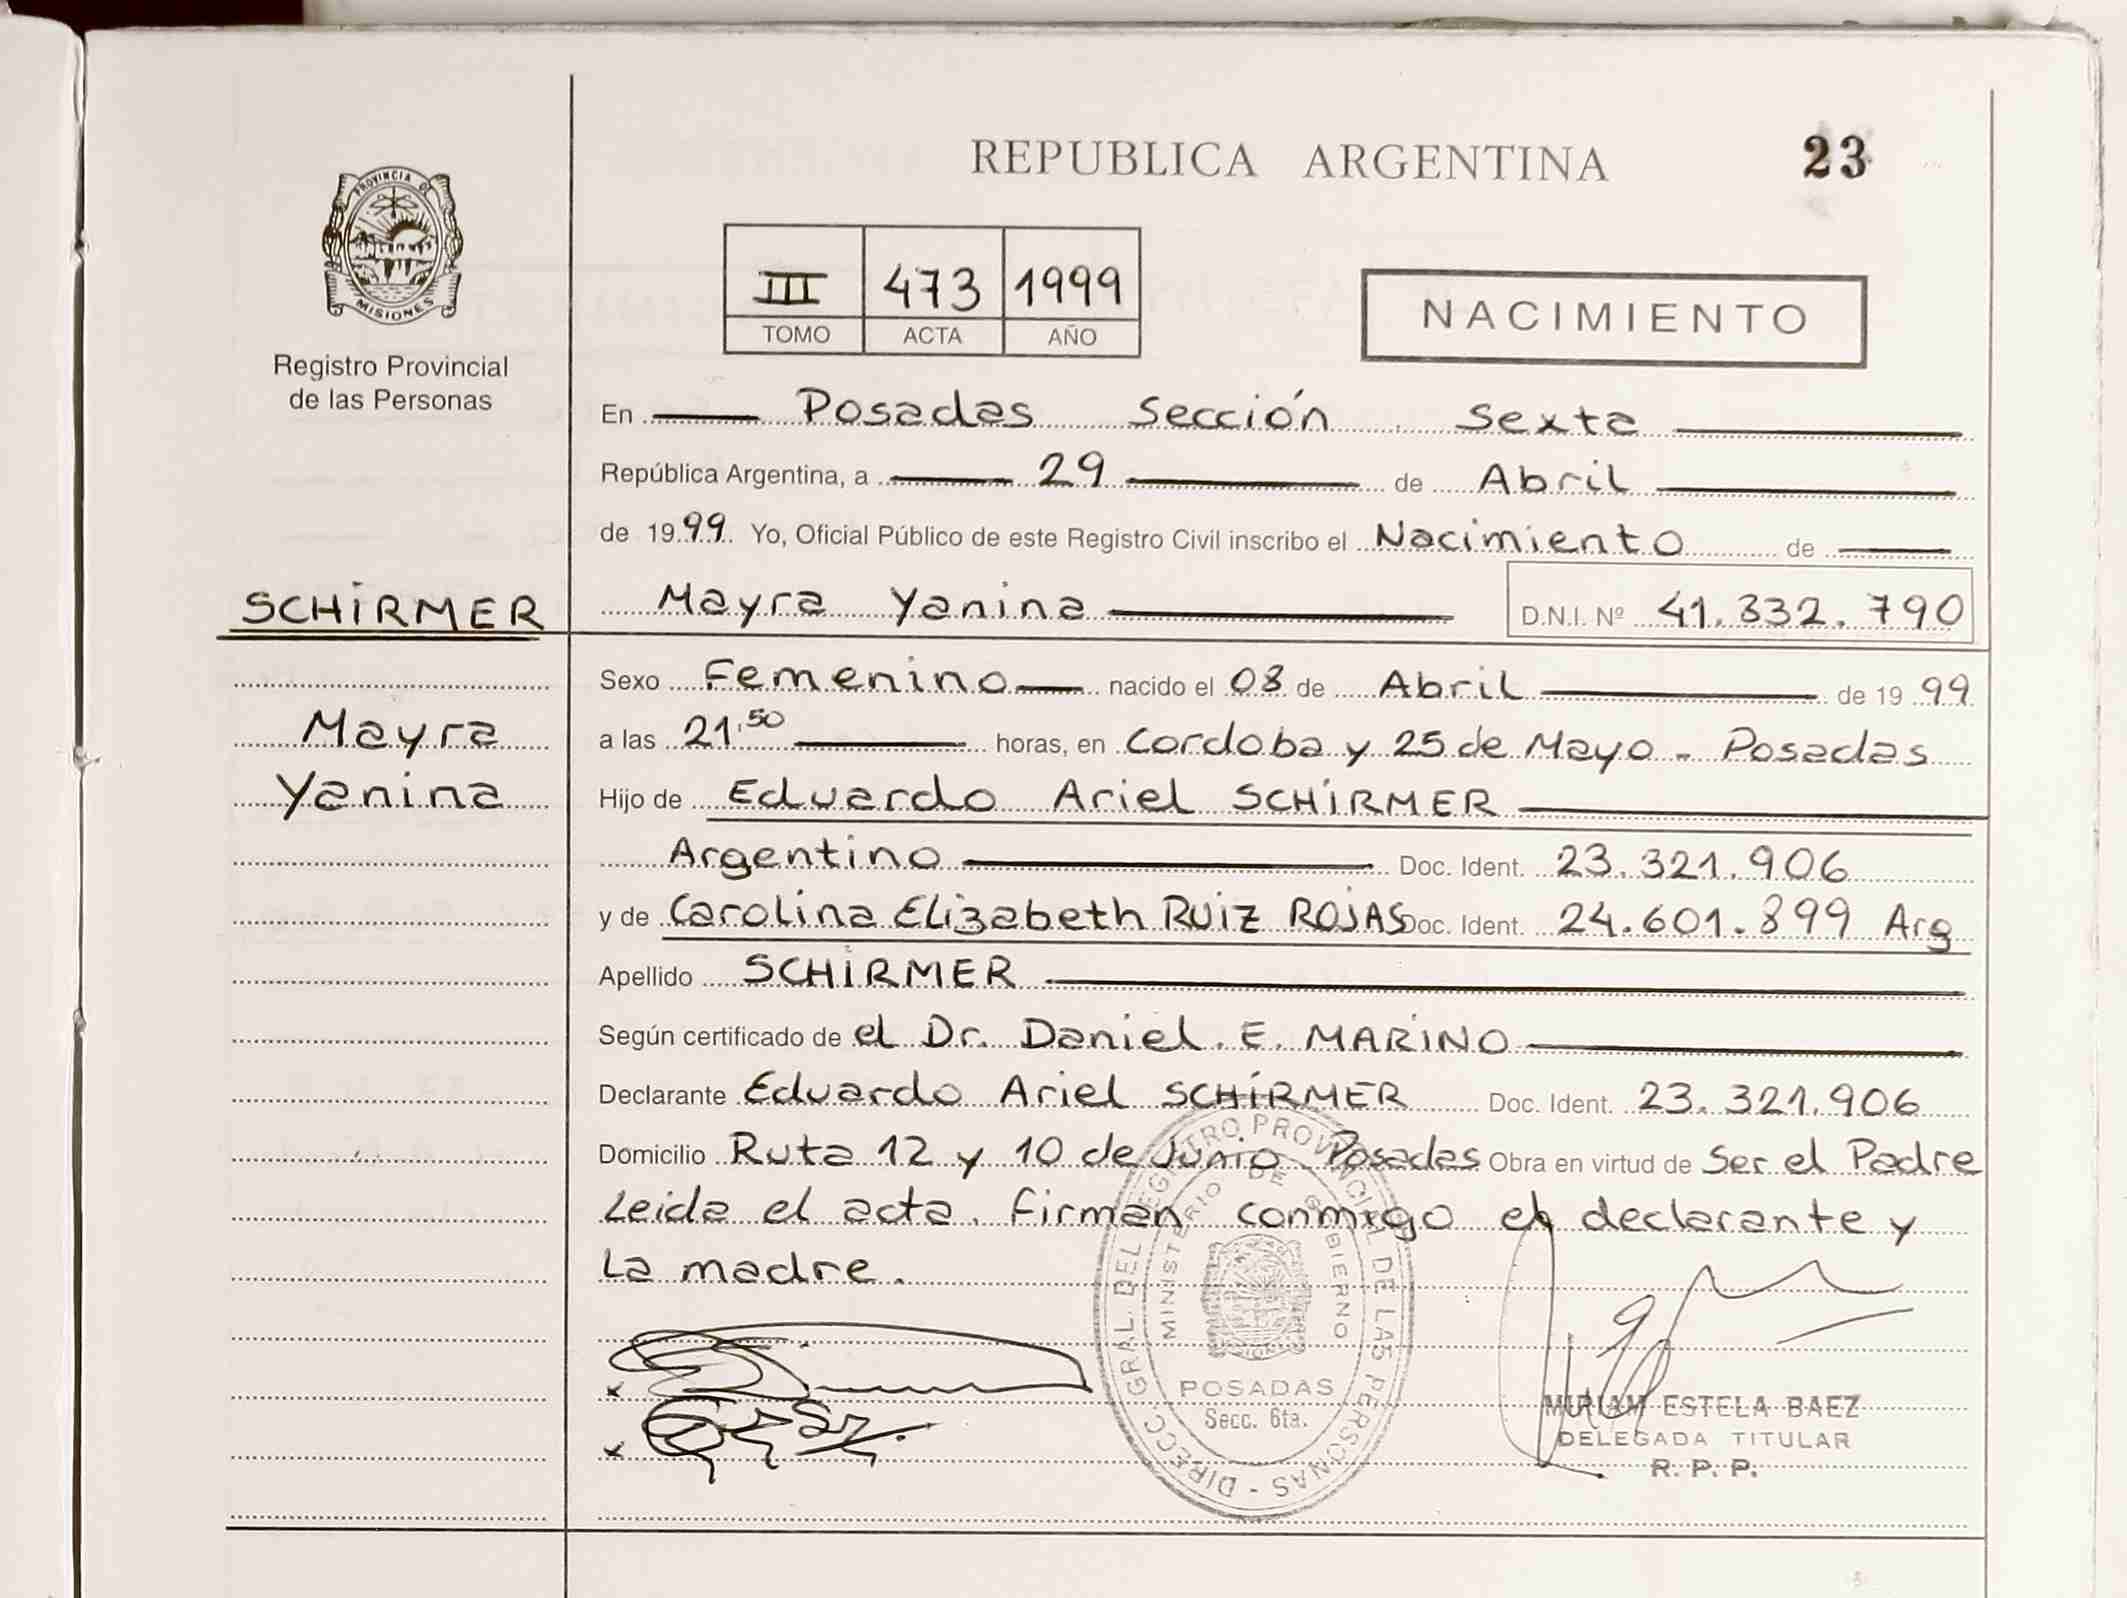 REPUBLICA ARGENTINA
23
PROVINCIA DE
MISIONES
Registro Provincial
de las Personas
III 473 1999
TOMO ACTA AÑO
NACIMIENTO
En Posadas Sección Sexta
República Argentina, a 29 de Abril
de 1999 Yo, Oficial Público de este Registro Civil inscribo el Nacimiento de
SCHIRMER
Mayra Yanina D.N.I. Nº 41.332.790
Sexo Femenino nacido el 08 de Abril de 1999
Mayra
a las 21,50 horas, en Cordoba y 25 de Mayo - Posadas
Yanina
Hijo de Eduardo Ariel SCHIRMER
Argentino Doc. Ident. 23.321.906
y de Carolina Elizabeth RUIZ ROJAS Doc. Ident. 24.601.899 Arg
Apellido SCHIRMER
Según certificado de el Dr. Daniel. E. MARINO
Declarante Eduardo Ariel SCHIRMER Doc. Ident. 23.321.906
Domicilio Ruta 12 y 10 de Junio - Posadas Obra en virtud de Ser el Padre
Leida el acta. firman conmigo el declarante y
La madre.
DIRECC. GRAL. DEL REGISTRO PROVINCIAL DE LAS PERSONAS -
MINISTERIO DE GOBIERNO
POSADAS
Secc. 6ta.
MIRIAM ESTELA BAEZ
DELEGADA TITULAR
R. P. P.